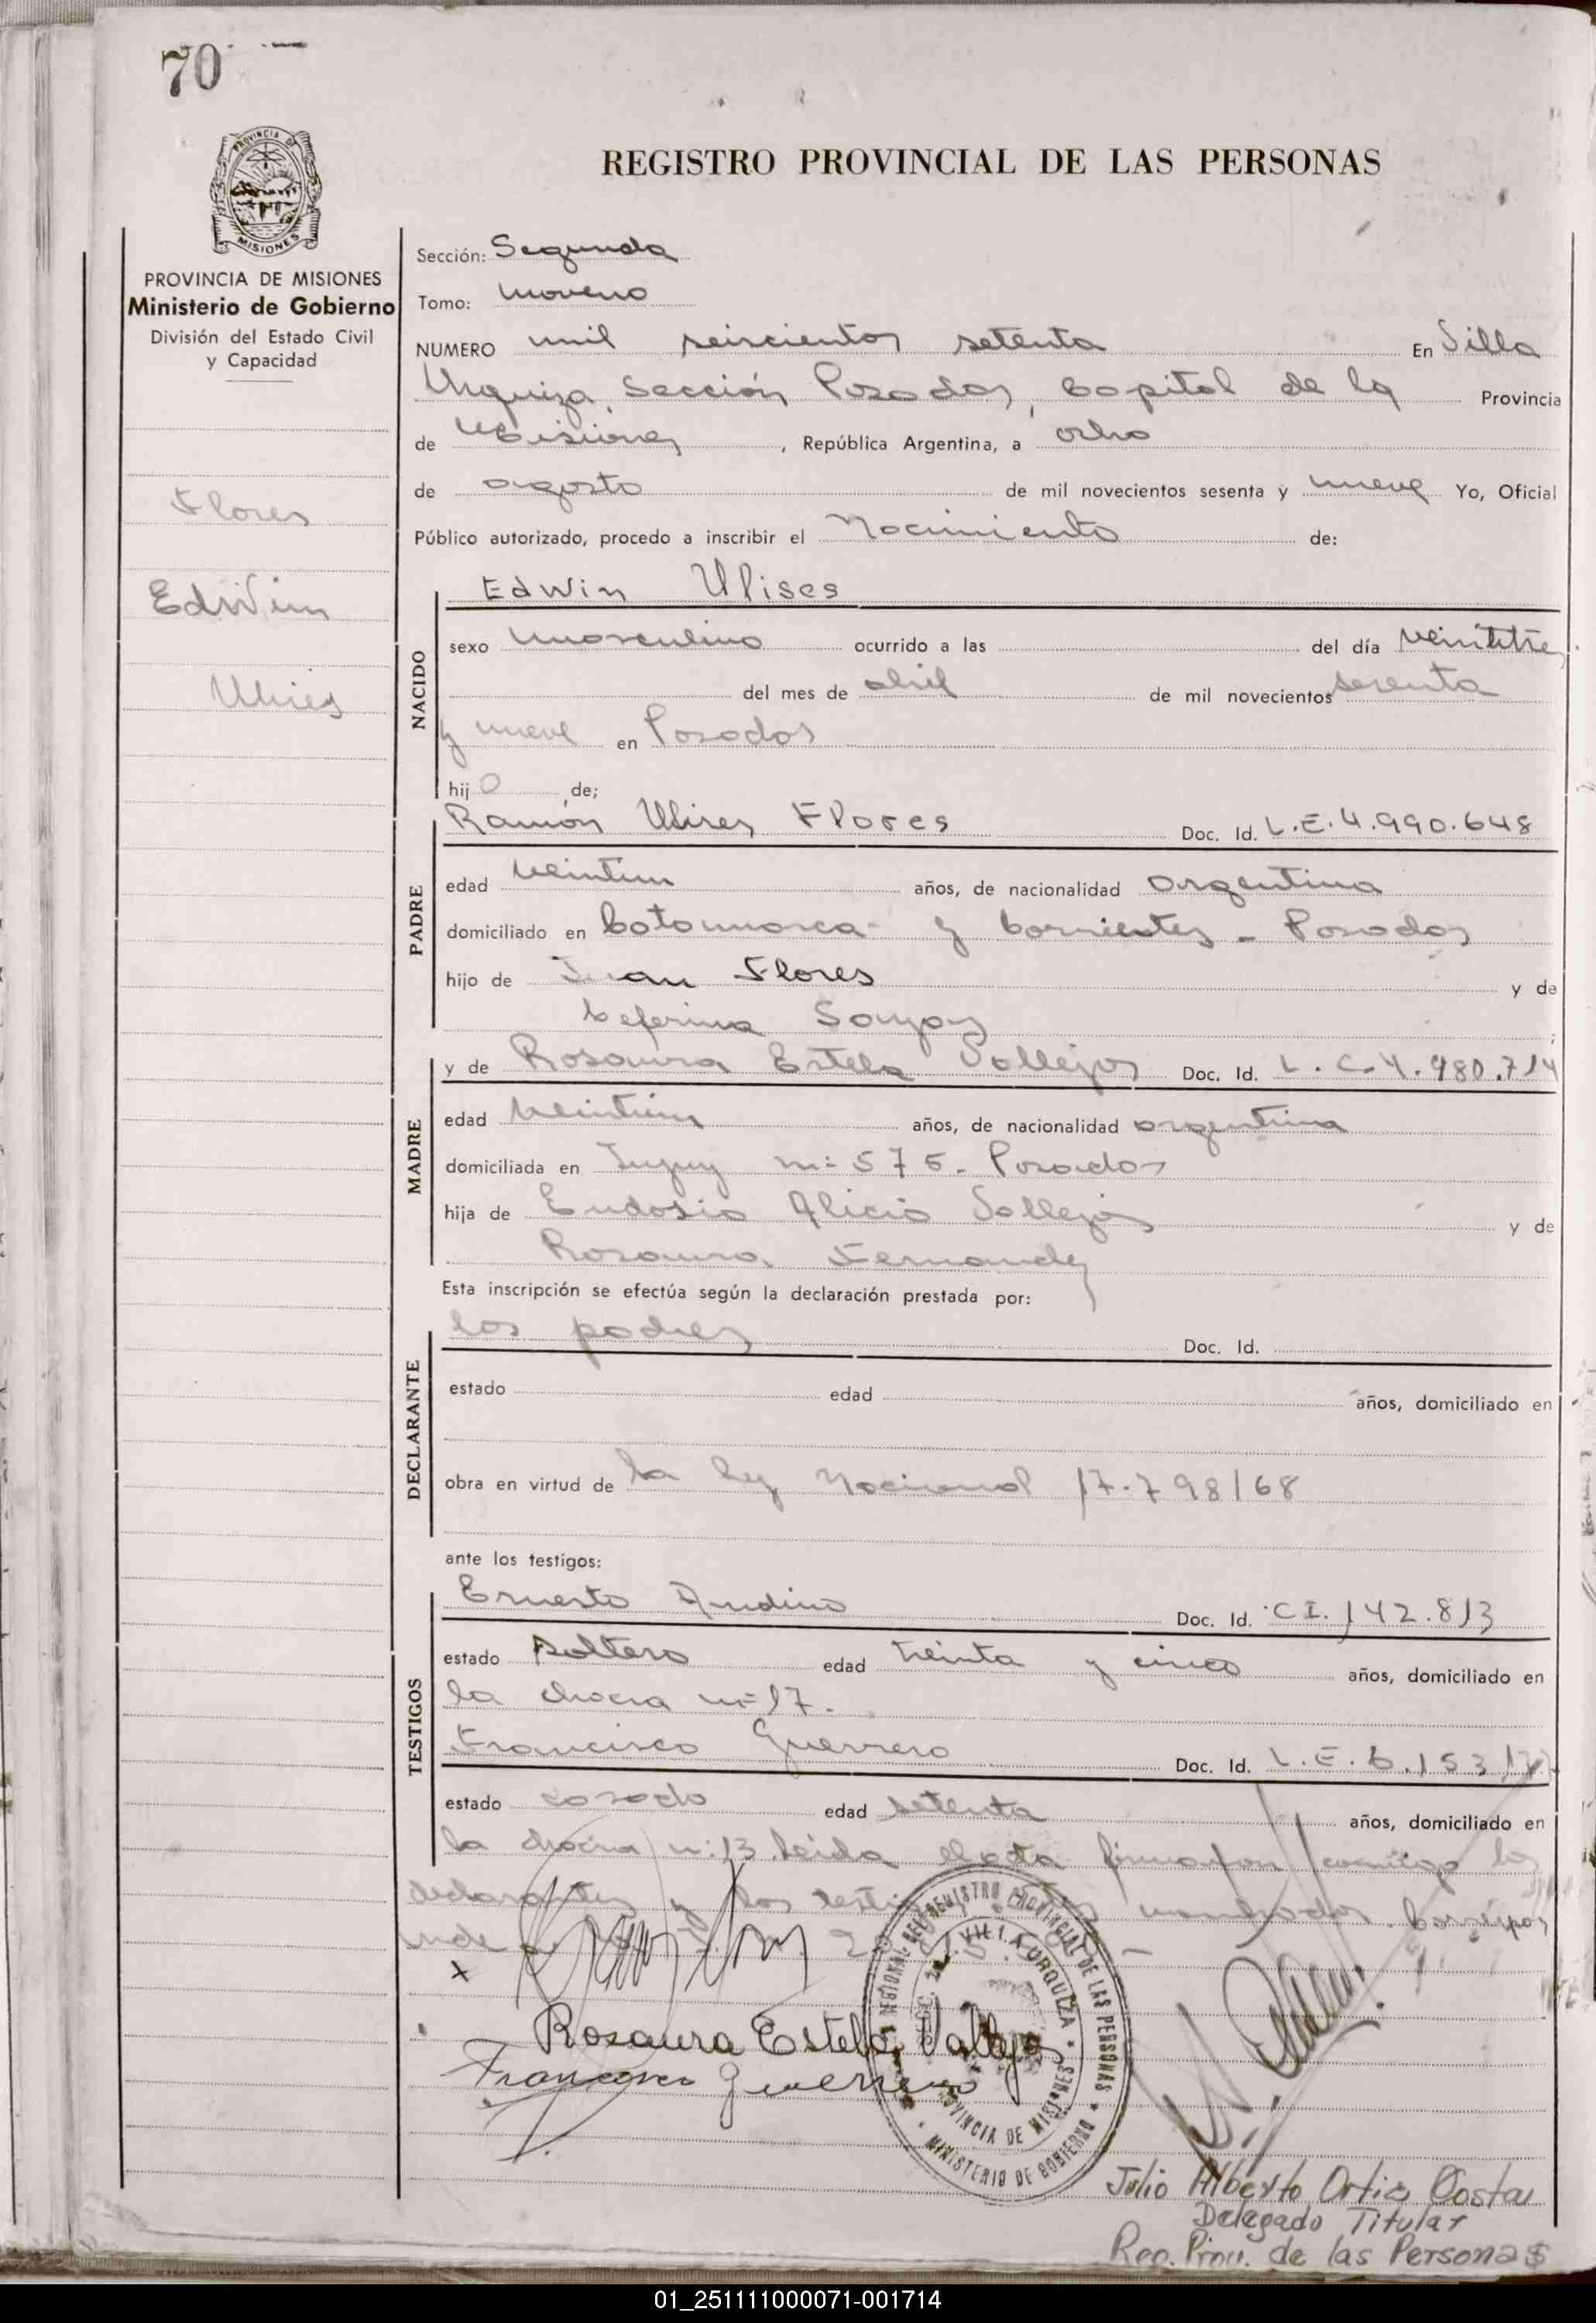 70
PROVINCIA DE
MISIONES
REGISTRO PROVINCIAL DE LAS PERSONAS
PROVINCIA DE MISIONES
Ministerio de Gobierno
División del Estado Civil
y Capacidad
Flores
Edwin
Ulises
Sección: Segunda
Tomo: Noveno
NUMERO mil seiscientos setenta En Villa
Urquiza, Sección Posadas, Capital de la Provincia
de Misiones, República Argentina, a ocho
de agosto de mil novecientos sesenta y nueve Yo, Oficial
Público autorizado, procedo a inscribir el Nacimiento de:
NACIDO
Edwin Ulises
sexo masculino ocurrido a las del día veintitres
del mes de abril de mil novecientos sesenta
y nueve en Posadas
hijo de;
PADRE
Ramón Ulises Flores Doc. Id. L.E. 4.990.648
edad veintiun años, de nacionalidad argentina
domiciliado en Catamarca y Corrientes - Posadas
hijo de Juan Flores y de
Ceferina
MADRE
y de Rosaura Estela Vallejos Doc. Id. L.C. 4.980.714
edad veintiun años, de nacionalidad argentina
domiciliada en Jujuy nº 575 - Posadas
hija de Eudosio Alicio Vallejos y de
Rosaura Fernandez
Esta inscripción se efectúa según la declaración prestada por:
DECLARANTE
los padres Doc. Id.
estado edad años, domiciliado en
obra en virtud de la ley Nacional 17.798/68
ante los testigos:
TESTIGOS
Ernesto Andino Doc. Id. C.I. 142.813
estado soltero edad treinta y cinco años, domiciliado en
la chacra nº 17.
Francisco Guerrero Doc. Id. L.E. 6.153.
estado casado edad setenta años, domiciliado en
la chacra nº 13. Leida el acta firmaron conmigo los
declarantes y los testigos mencionados. Corresponde
Rosaura Estela Vallejos
Francisco Guerrero
REGIONAL DEL REGISTRO PROVINCIAL DE LAS PERSONAS
MINISTERIO DE GOBIERNO
VILLA URQUIZA
PROVINCIA DE MISIONES
Julio Alberto Ortiz Costa
Delegado Titular
Reg. Prov. de las Personas
01_251111000071-001714